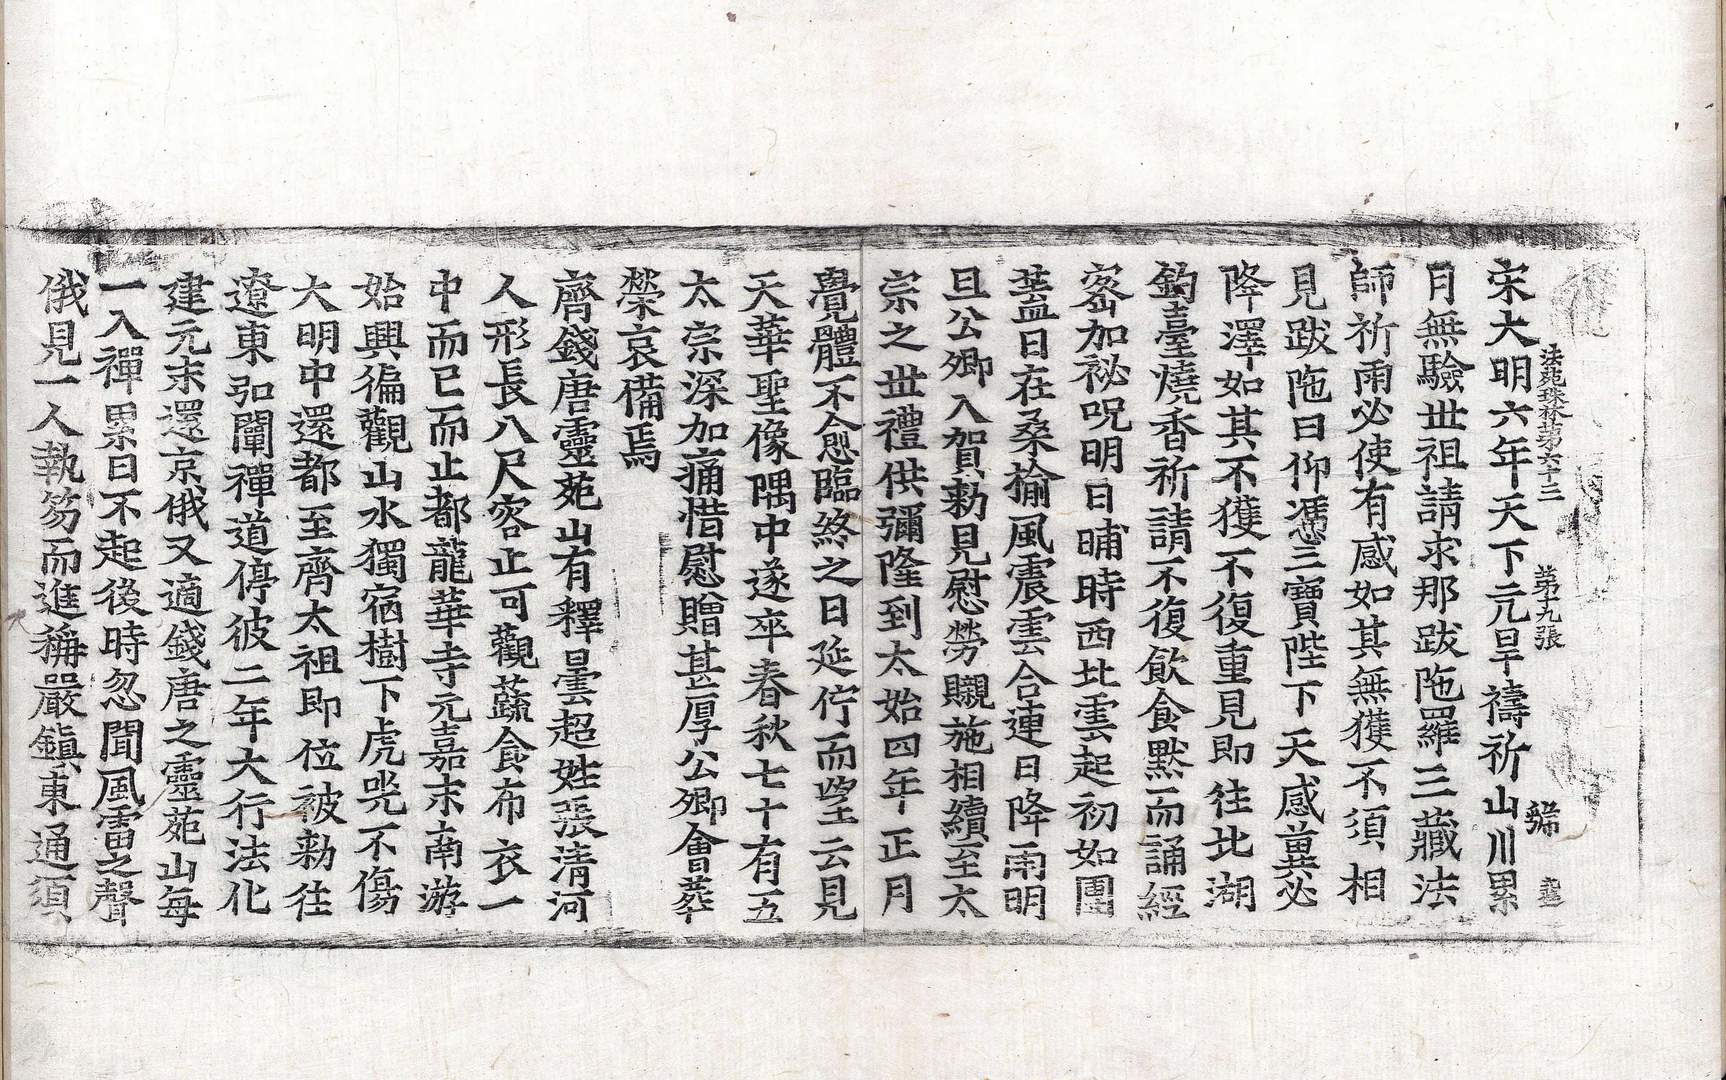 法苑珠林第六十三 第九張 號
宋大明六年天下亢旱禱祈山川累
月無驗世祖請求那跋陁羅三藏法
師祈雨必使有感如其無獲不須相
見跋陁曰仰馮三寶陛下天感冀必
降澤如其不獲不復重見即往北湖
釣臺燒香祈請不復飲食默而誦經
密加祕呪明日晡時西北雲起初如團
盖日在桑揄風震雲合連日降雨明
旦公卿入賀勑見慰勞賵施相續至太
宗之世禮供彌隆到太始四年正月
覺體不悆臨終之日延佇而望云見
天華聖像隅中遂卒春秋七十有五
太宗深加痛惜慰贈甚厚公卿會葬
榮哀備焉
齊錢唐靈苑山有釋曇超姓張清河
人形長八尺容止可觀蔬食布衣一
中而已而止都龍華寺元嘉末南游
始興徧觀山水獨宿樹下虎兕不傷
大明中還都至齊太祖即位被勑往
遼東弘闡禪道停彼二年大行法化
建元末還京俄又適錢唐之靈苑山每
一入禪累日不起後時忽聞風雷之聲
俄見一人執笏而進稱嚴鎮東通須